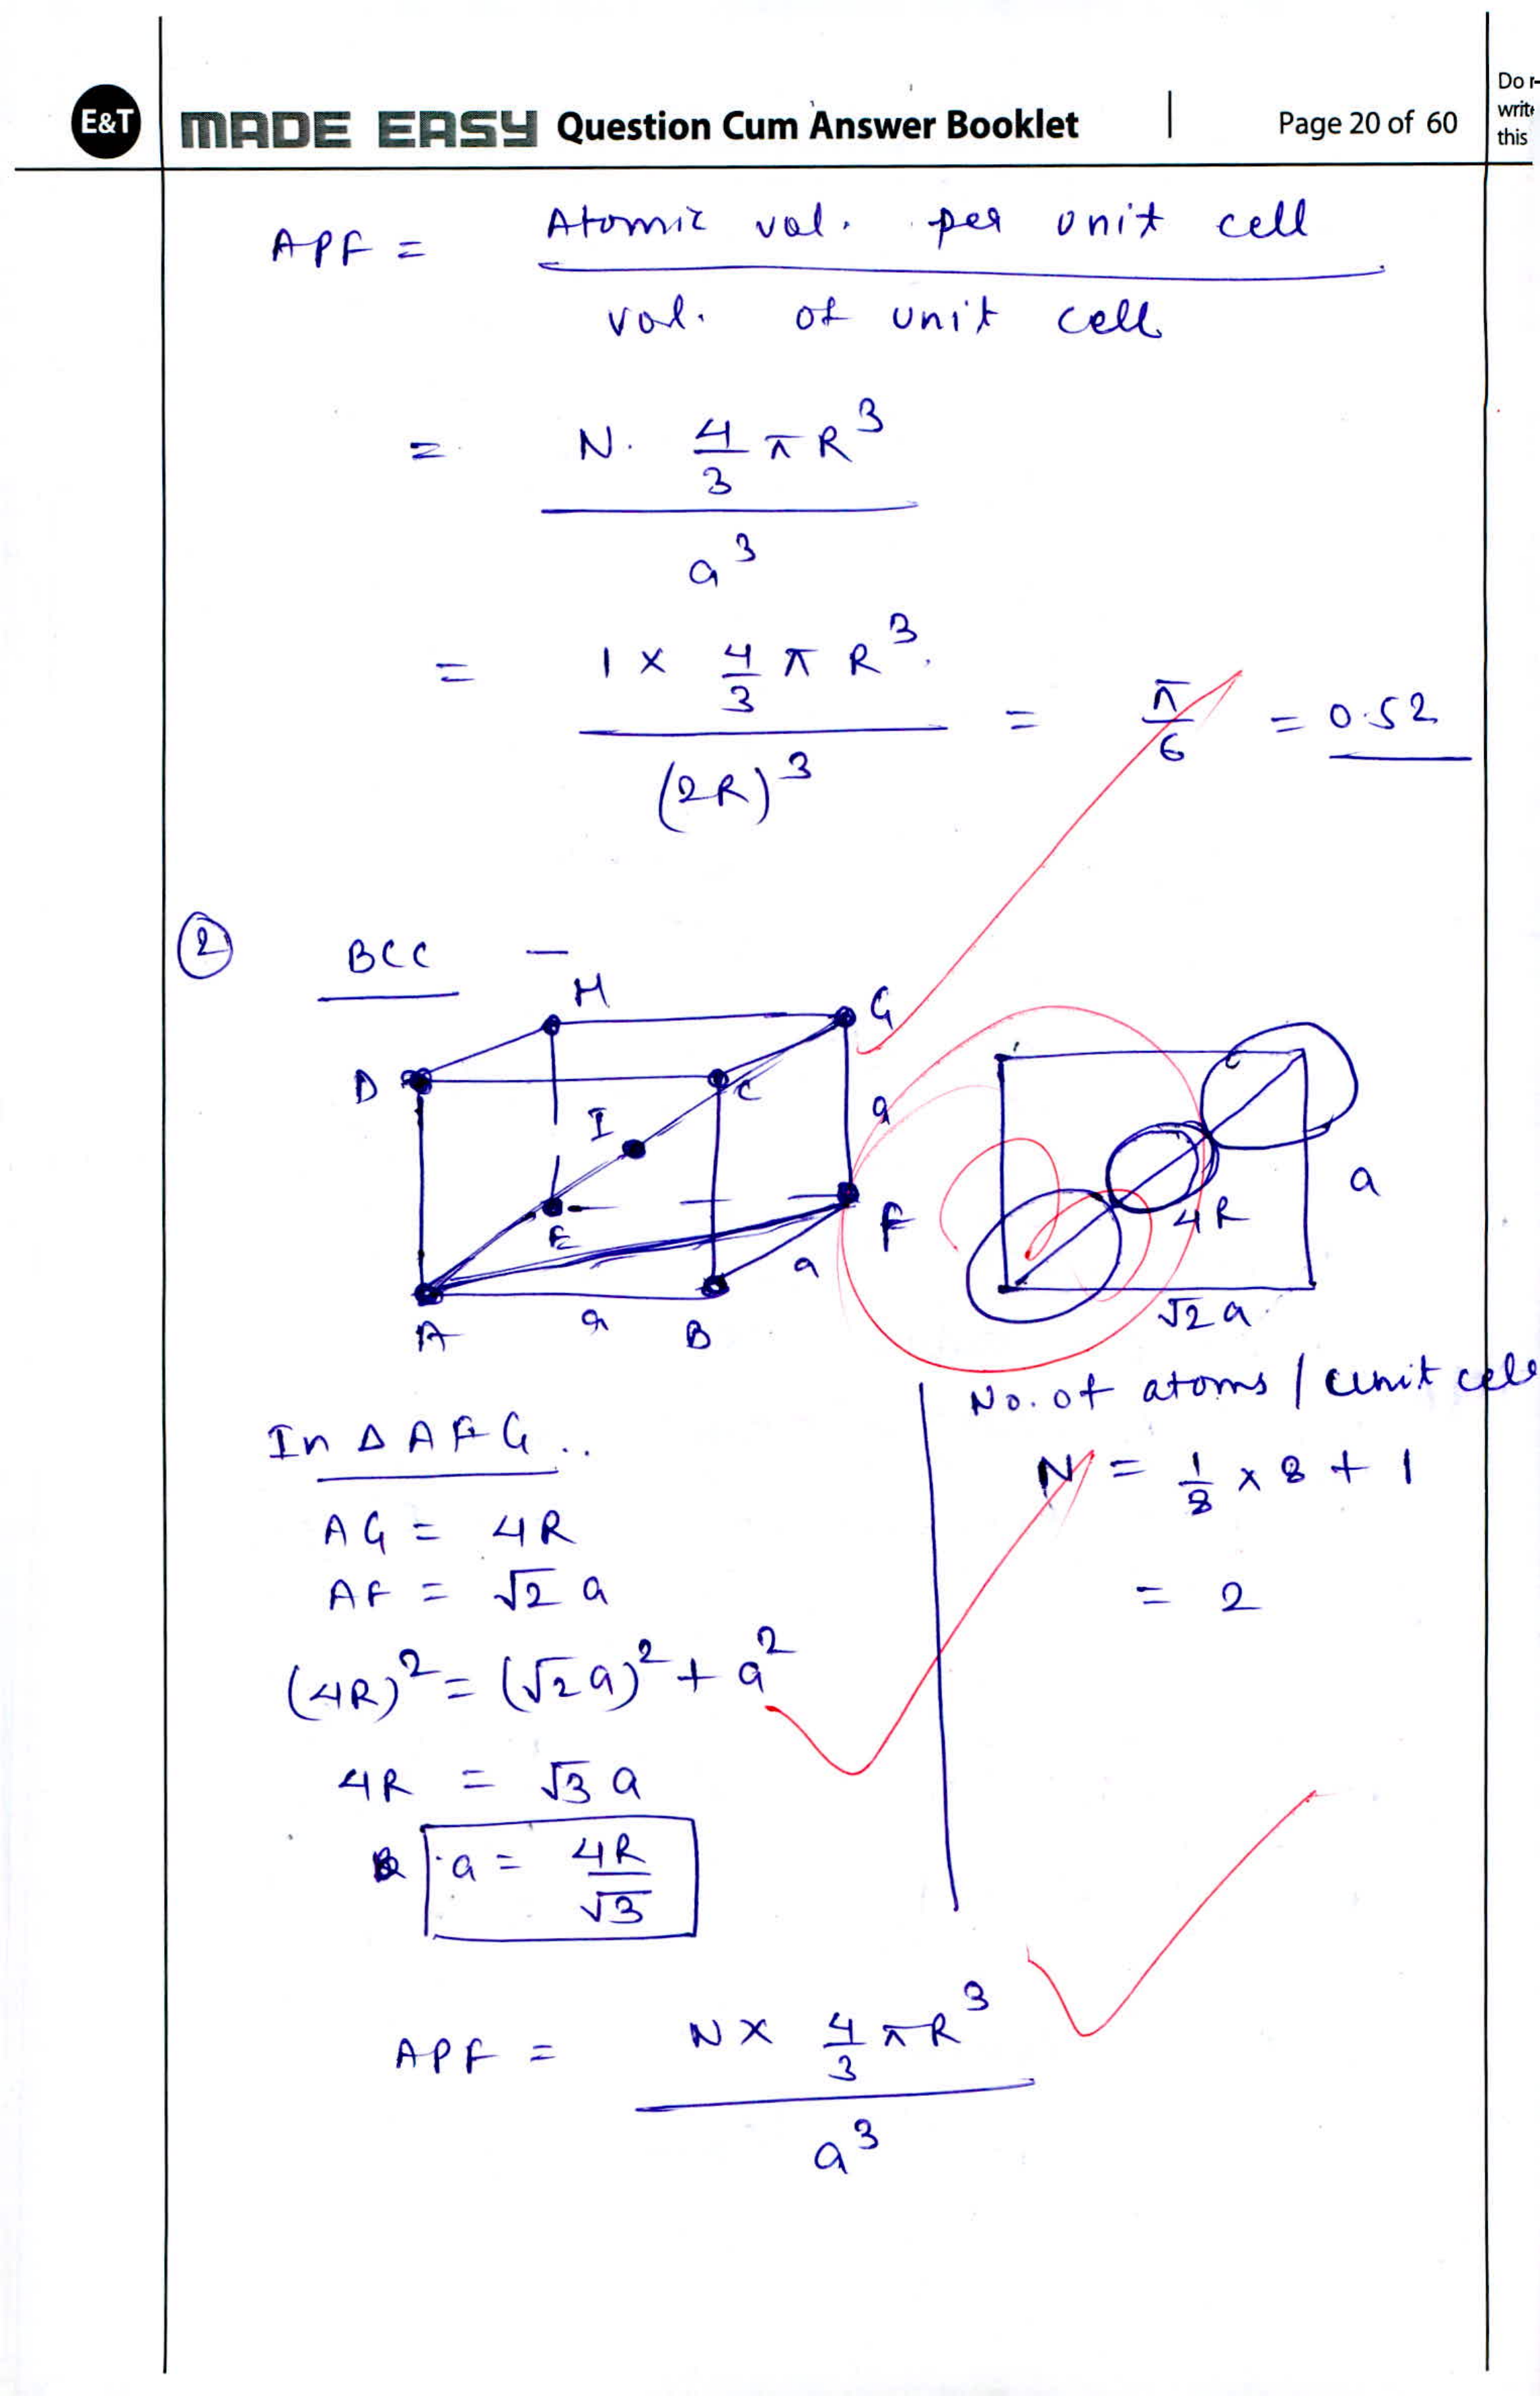 E&T MADE EASY Question Cum Answer Booklet | Page 20 of 60
write
this
APF = Atomic vol. per unit cell
vol. of unit cell
= N. 4/3 π R³
a³
= 1 × 4/3 π R³ = π/6 = 0.52
(2R)³
② BCC —
H G
D C
I a
E F
a
A a B
4R a
√2 a
In Δ AFG ..
AG = 4R
AF = √2 a
(4R)² = (√2a)² + a²
4R = √3 a
a = 4R/√3
No. of atoms / unit cell
N = 1/8 × 8 + 1
= 2
APF = N × 4/3 π R³
a³